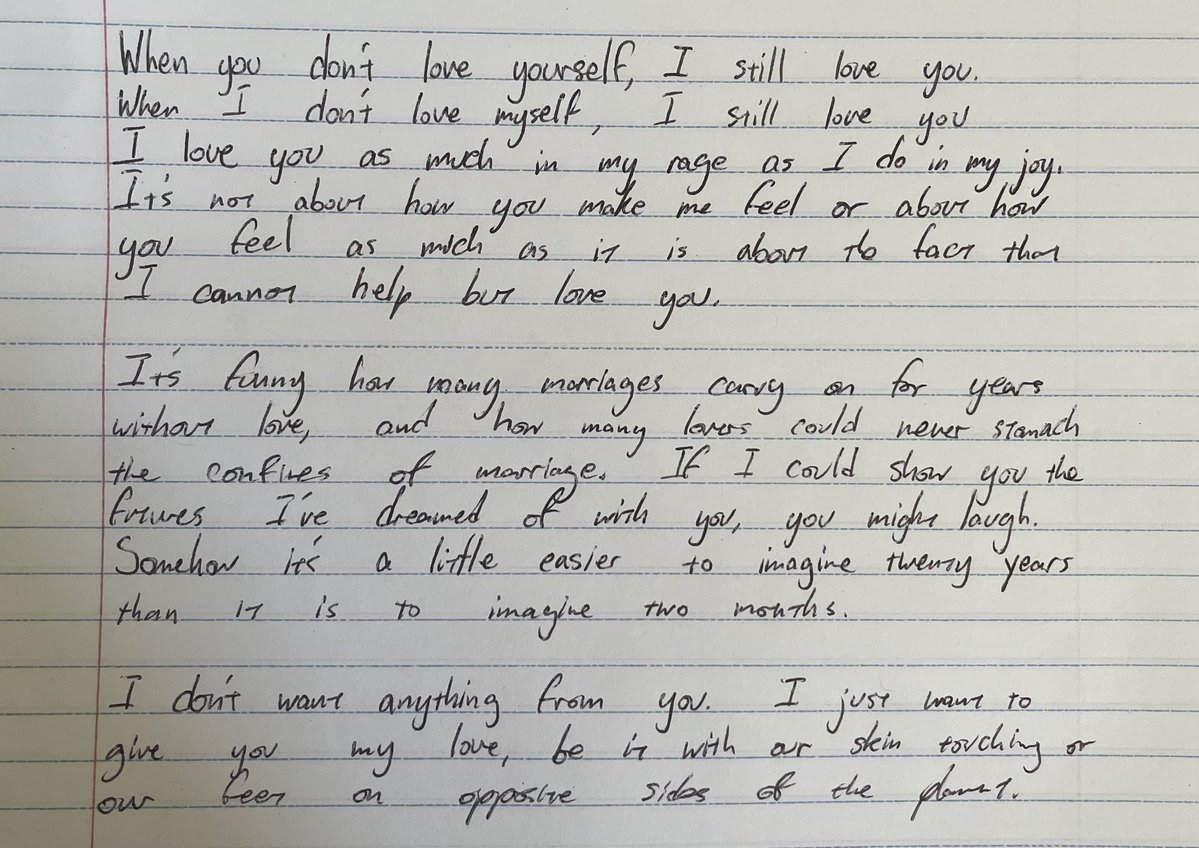 When you don't love yourself, I still love you.
When I don't love myself, I still love you
I love you as much in my rage as I do in my joy.
It's not about how you make me feel or about how
you feel as much as it is about the fact that
I cannot help but love you.
It's funny how many marriages carry on for years
without love, and how many lovers could never stomach
the confines of marriage. If I could show you the
futures I've dreamed of with you, you might laugh.
Somehow it's a little easier to imagine twenty years
than it is to imagine two months.
I don't want anything from you. I just want to
give you my love, be it with our skin touching or
our feet on opposite sides of the planet.